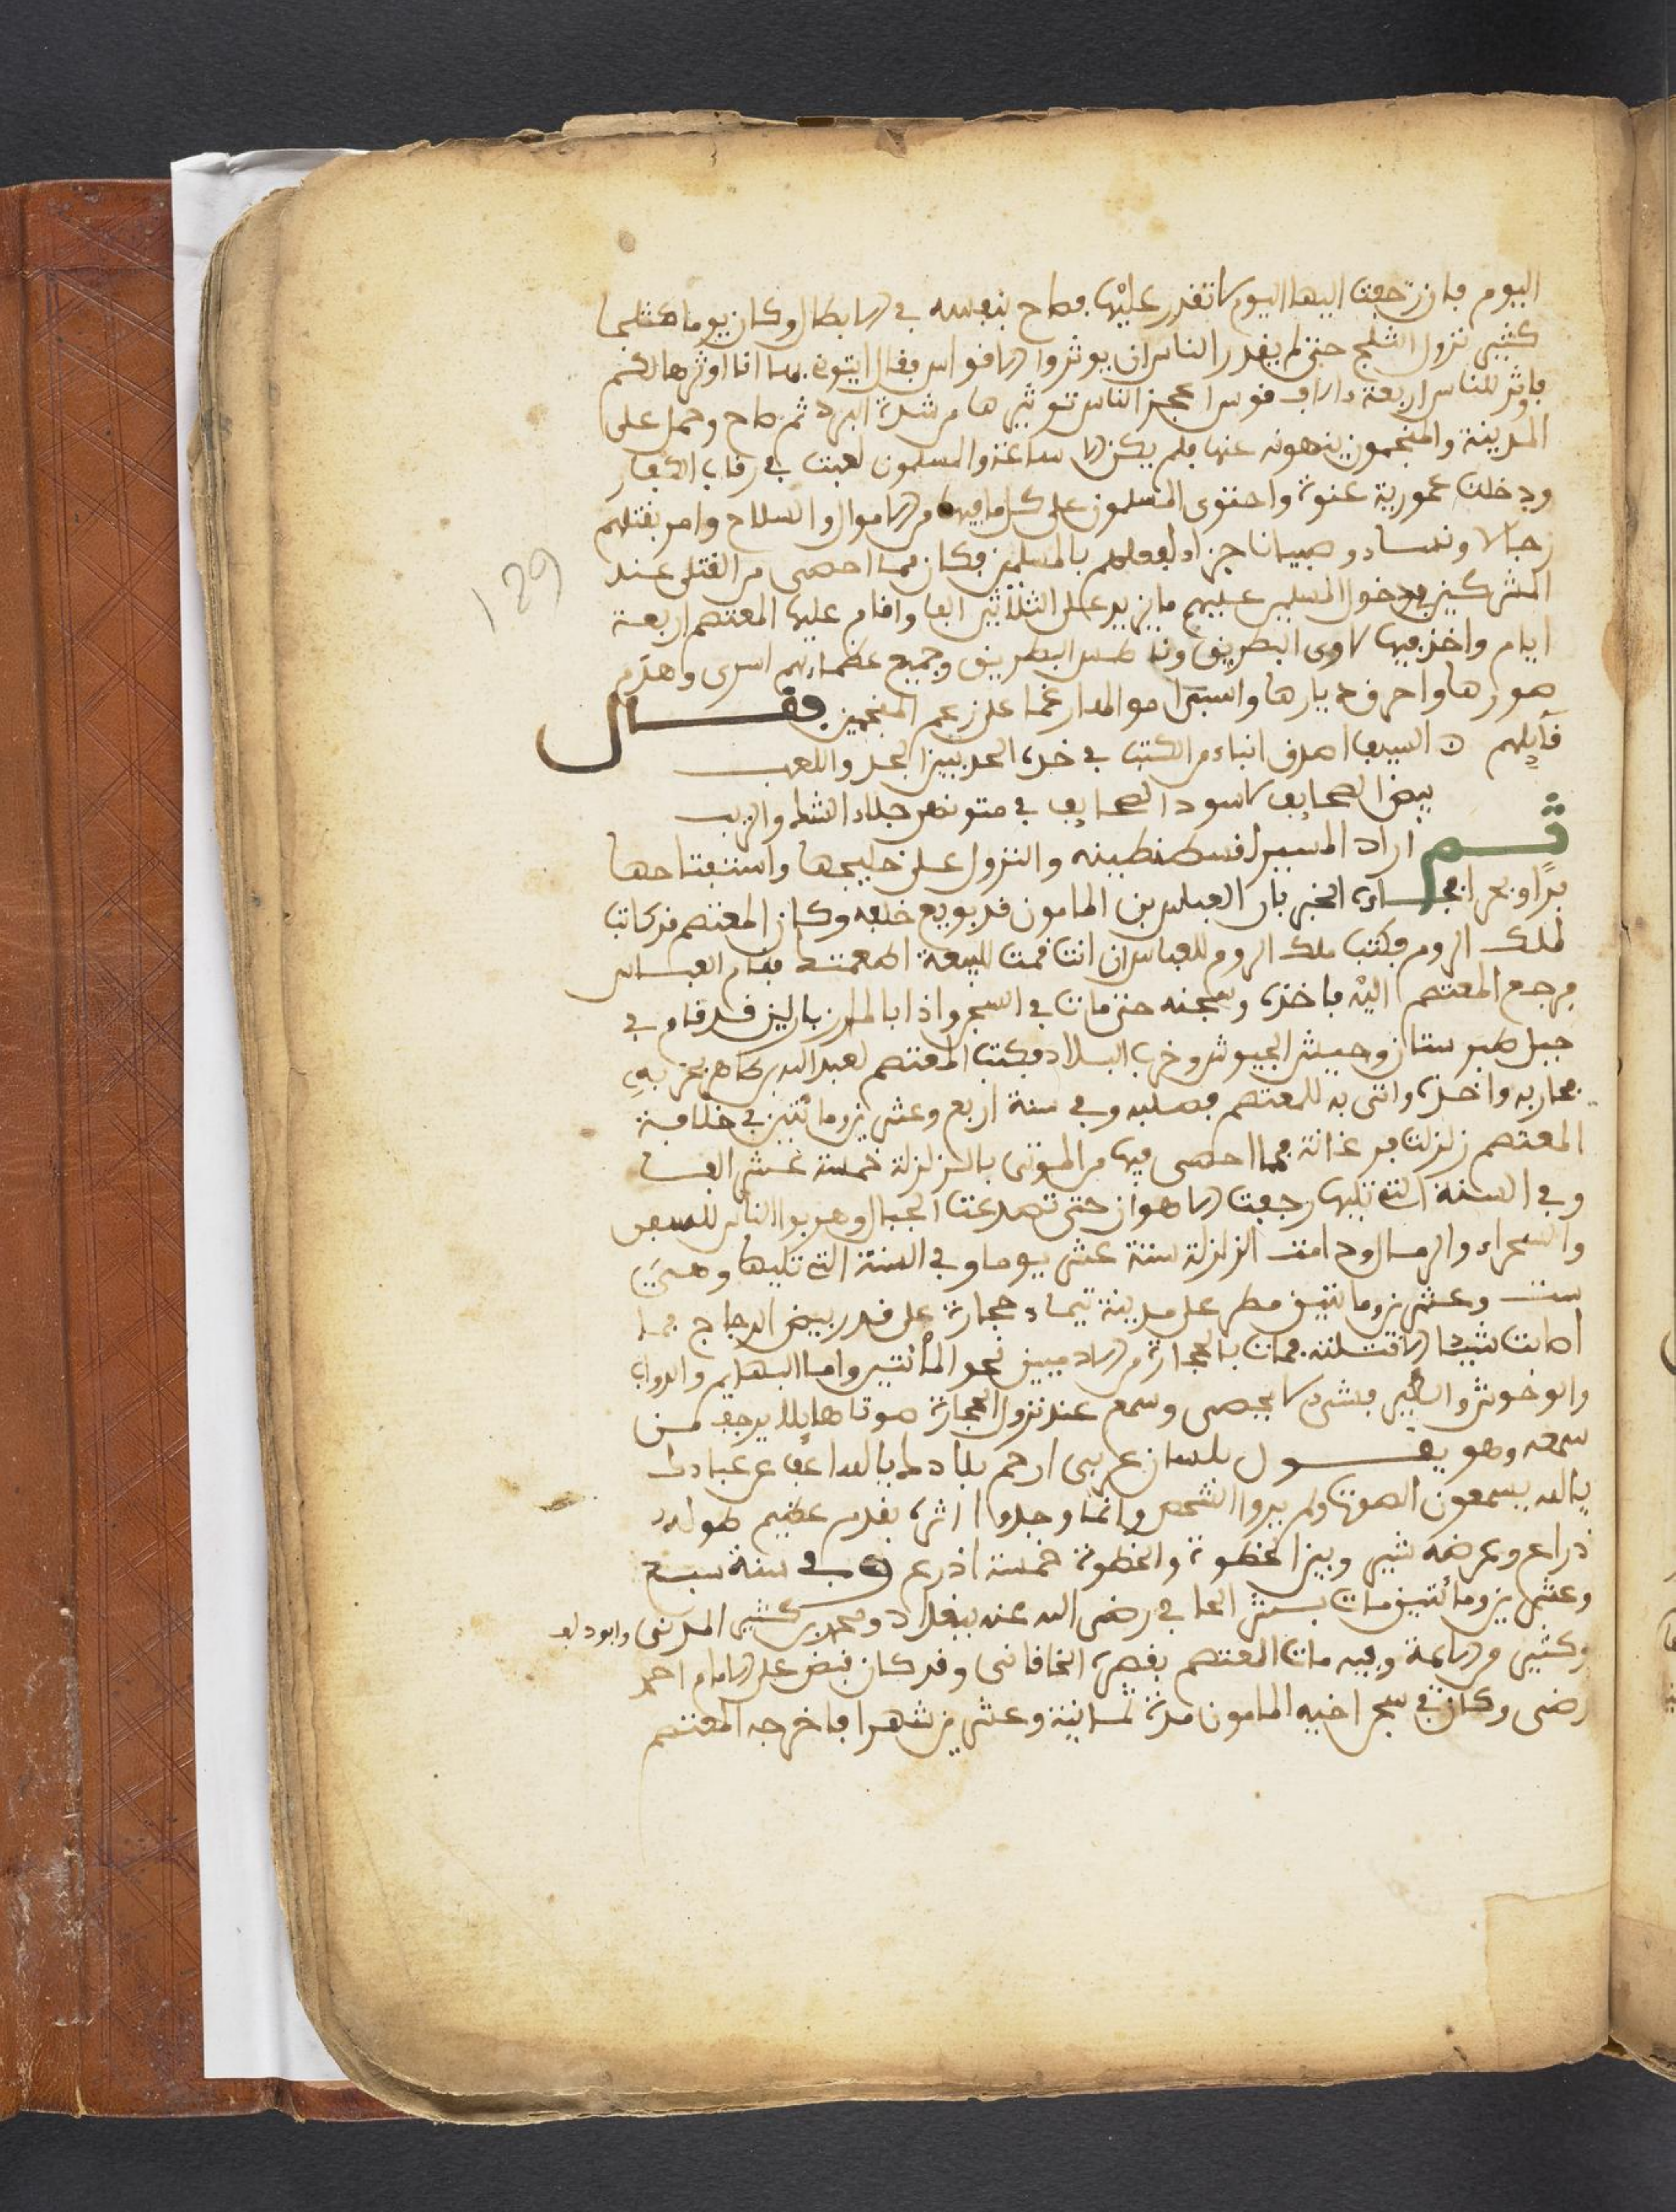 اليوم فان زحفت اليها اليوم لا تقدر عليها فصاح بنفسه في الابطال وكان يوما
كثير نزول الثلج حتى لم يقدر الناس ان يوتروا الاقواس فقال ايتوني بها انا اوترها لكم
فاوتر للناس اربعة الاف قوس اعجز الناس توتيرها من شدة البرد ثم صاح وحمل على
المدينة والمنجمون ينهونه عنها فلم يكن الا ساعة والمسلمون لعبت في رقاب الكفار
ودخلت عمورية عنوة واحتوى المسلمون على كل ما فيها من الاموال والسلاح وامر بقتلهم
رجالا ونساء وصبيانا جزاء لفعلهم بالمسلمين فكان مما احصى من القتلى عند
المشركين دخول المسلمين عليهم ما يزيد على الثلاثين الفا واقام عليها المعتصم اربعة
ايام واخذ فيها لاوى البطريق وناطس البطريق وجميع عظمائهم اسرى وهدم
صورها واحرق ديارها واستبرا موالدا رغما على زعم المنجمين فقال
قايلهم السيف اصدق انباء من الكتب في حده الحد بين الجد واللعب
بيض الصحايف لا سود الصحايف في متونهن جلاء الشك والريب
ثم اراد المسير لقسطنطينه والنزول على خليجها واستفتاحها
برا وبحرا فجاءه الخبر بان العباس بن المامون قد بويع خلفه وكان المعتصم قد كاتب
لملك الروم فكتب ملك الروم للعباس ان انت قمت للبيعة فقام العباس
فرجع المعتصم اليه فاخذه وسجنه حتى مات في السجن واذا بالمازيار الذي قد قام في
جبل طبرستان وجيش الجيوش وخرب البلاد فكتب المعتصم لعبد الله بن طاهر بحربه
فحاربه واخذه واتى به للمعتصم فصلبه وفي سنة اربع وعشرين ومائتين في خلافة
المعتصم زلزلت فرغانة فمما احصى فيها من الموتى بالزلزلة خمسة عشر الفا
وفي السنة التي تليها رجفت الاهواز حتى تصدعت الجبال وهربوا الناس للسفن
والصحراء والرمال ودامت الزلزلة ستة عشر يوما وفي السنة التي تليها وهي
ست وعشرين ومائتين مطر على مدينة تيماء حجارة على قدر بيض الدجاج فما
اصابت شيئا الا قتلته فمات بالحجارة من الادميين نحو المائتين واما البهايم والدواب
والوحوش والطير فشيء لا يحصى وسمع عند نزول الحجارة صوتا هايلا يرجف من
سمعه وهو يقول بلسان عربي ارحم بلادك يا الله اعف عن عبادك
يا الله يسمعون الصوت ولم يروا الشخص وانما وجدوا اثره بقدم عظيم طوله
ذراع وعرضه شبر وبين الخطوة والخطوة خمسة اذرع وفي سنة سبع
وعشرين ومائتين مات بشر الحافي رضي الله عنه ببغداد ومحمد بن كثير المدني وابو دلف
وكثير من الايمة وفيه مات المعتصم بقصره الخاقاني وقد كان قبض على الامام احمد
رضى وكان في سجن اخيه المامون مدة ثمانية وعشرين شهرا فاخرجه المعتصم
129